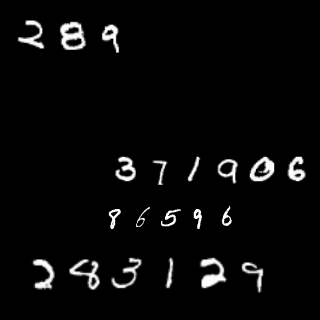 289
371906
86596
283129